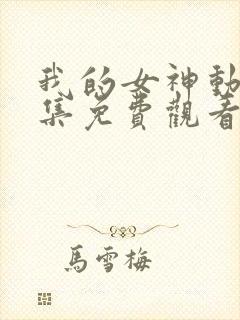 我的女神動
集免費觀看
馬雪梅